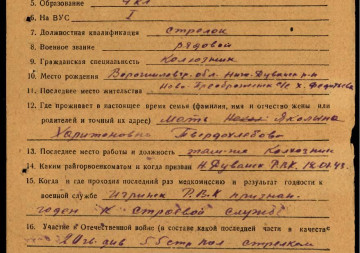 5. Образование 4 кл
6. На ВУС 1
7. Должностная квалификация стрелок
8. Военное звание рядовой
9. Гражданская специальность Колхозник
10. Место рождения Ворошиловгр. обл. Ново-Дуванс р-н
11. Последнее место жительства
12. Где проживает в настоящее время семья (фамилия, имя и отчество жены или
родителей и точный их адрес) мать
Харитоновна Твердохлебова
13. Последнее место работы и должность там-же Колхозник
14. Каким райгорвоенкоматом и когда призван Н. Дуванск РВК
15. Когда и где проходил последний раз медкомиссию и результат годности к
военной службе Р.В.К признан.
годен К строевой службе
16. Участие в Отечественной войне (в составе какой последней части и качестве
20 гв. див 55 стр. пол стрелком